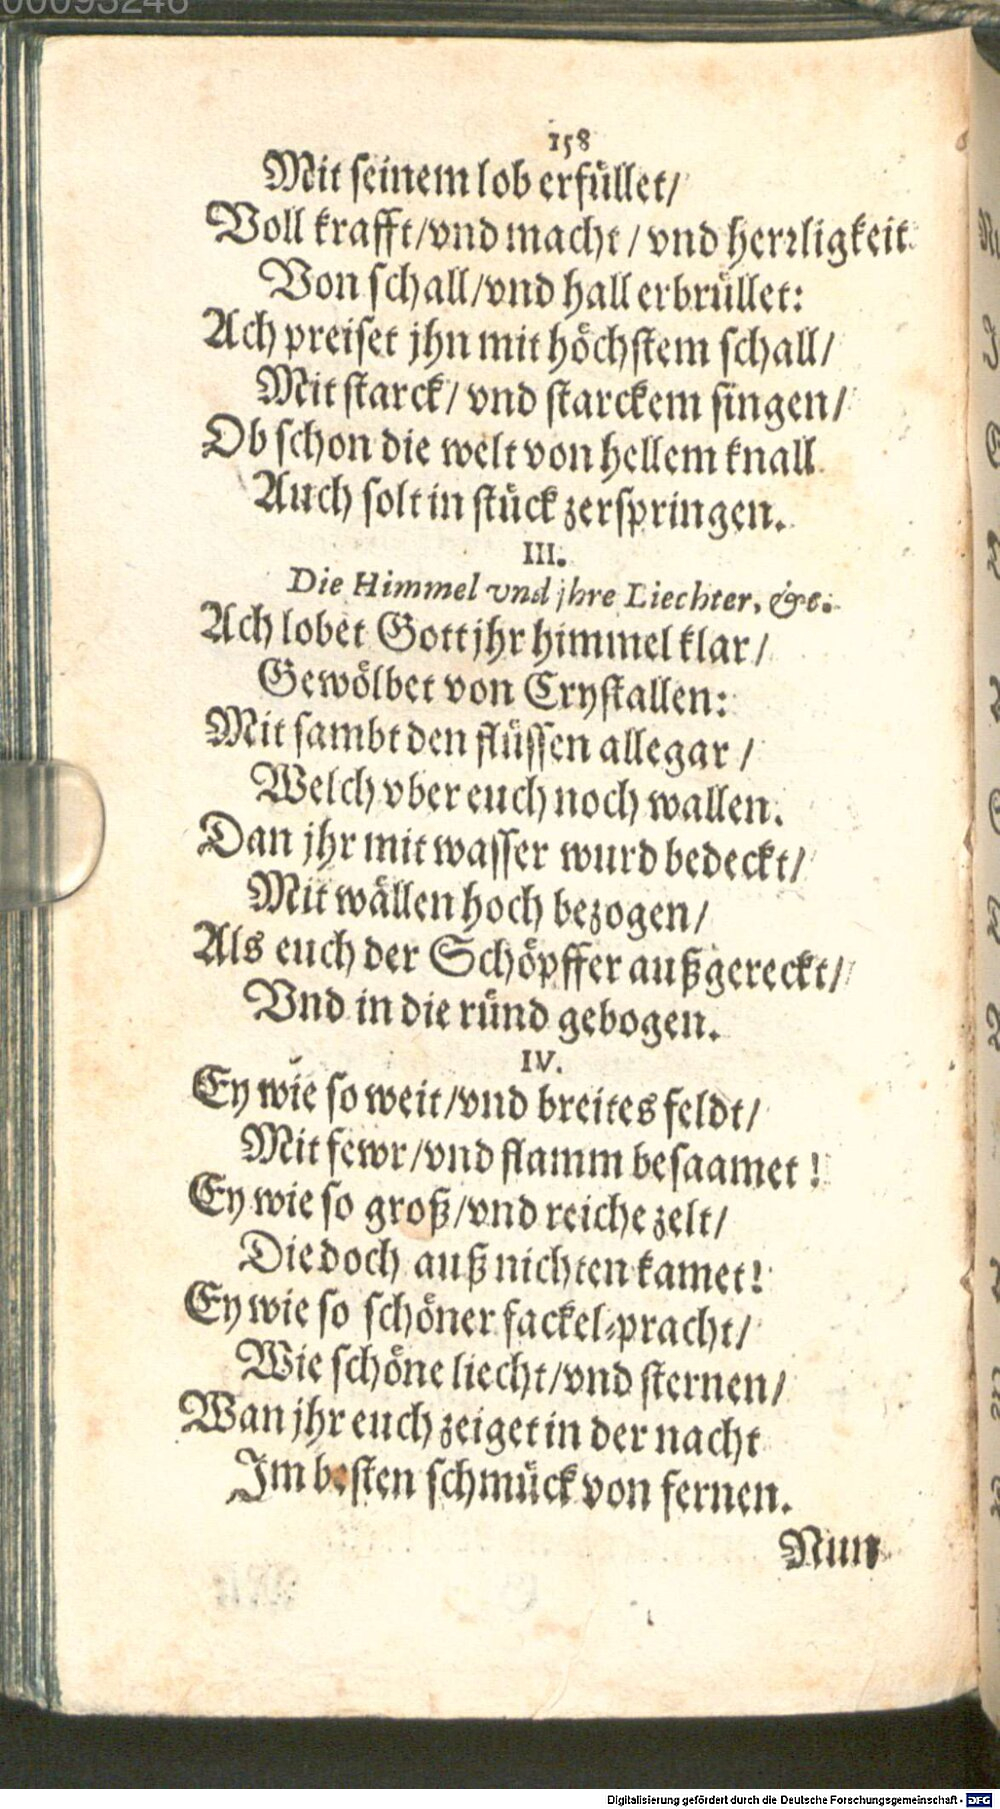 00093246
158
Mit seinem lob erfüllet/
Voll krafft/vnd macht / vnd herꝛligkeit
Von schall/vnd hall erbrüllet:
Ach preiset jhn mit höchstem schall/
Mit starck/ vnd starckem singen/
Ob schon die welt von hellem knall
Auch solt in stück zerspringen.
III.
Die Himmel vnd jhre Liechter, &c.
Ach lobet Gott jhr himmel klar/
Gewölbet von Crystallen:
Mit sambt den flüssen allegar /
Welch vber euch noch wallen.
Dan jhr mit wasser wurd bedeckt/
Mit wällen hoch bezogen/
Als euch der Schöpffer außgereckt/
Vnd in die ründ gebogen.
IV.
Ey wie so weit/vnd breites feldt/
Mit fewr/vnd flamm besaamet !
Ey wie so groß/vnd reiche zelt/
Die doch auß nichten kamet!
Ey wie so schöner fackel-pracht/
Wie schöne liecht/vnd sternen/
Wan jhr euch zeiget in der nacht
Im besten schmück von fernen.
Nun
Digitalisierung gefördert durch die Deutsche Forschungsgemeinschaft - DFG